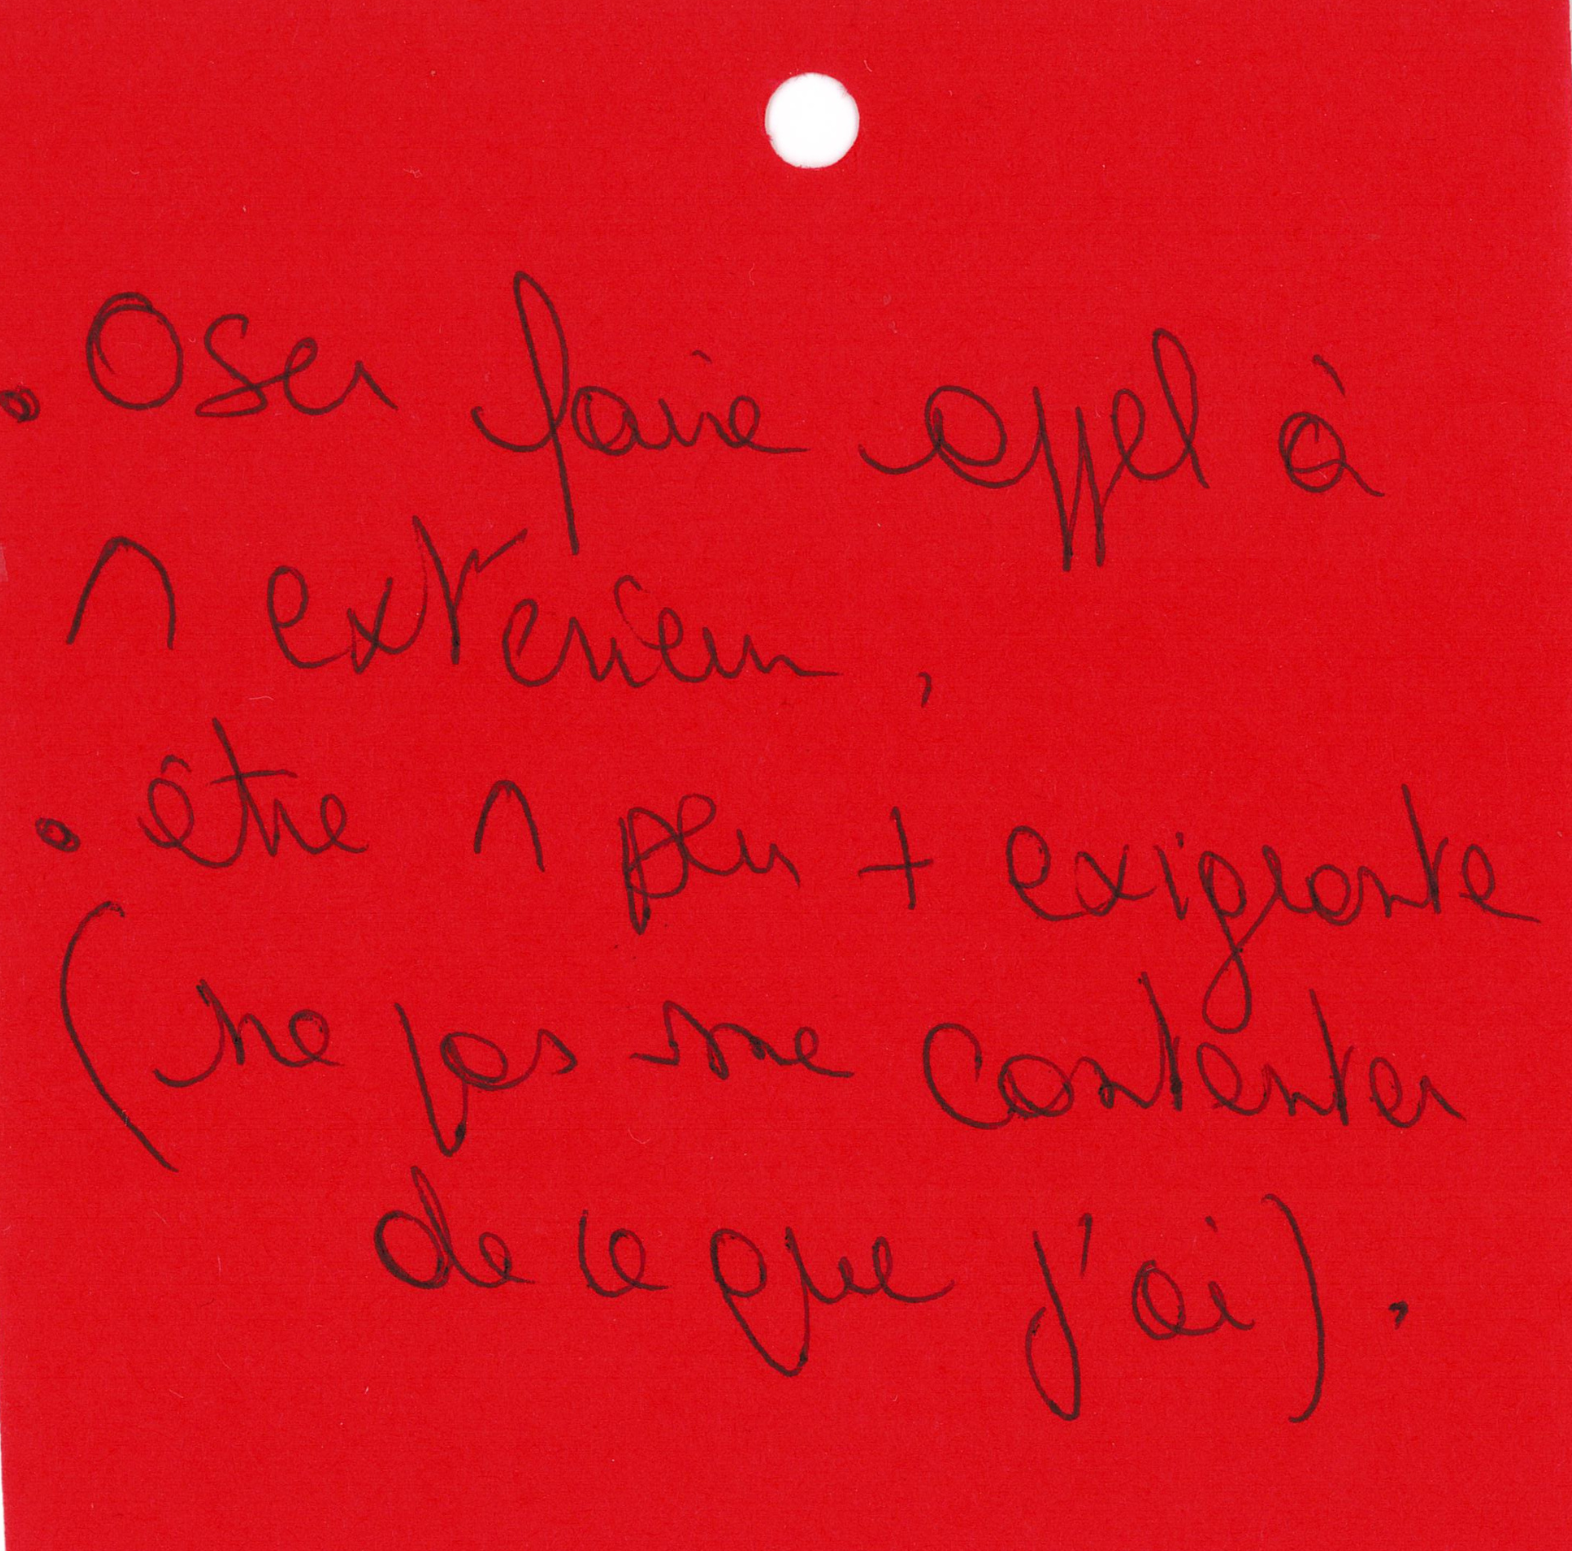 . Oser faire appel à
1 extérieur,
. être 1 peu + exigeante
(ne pas me contenter
de ce que j'ai).